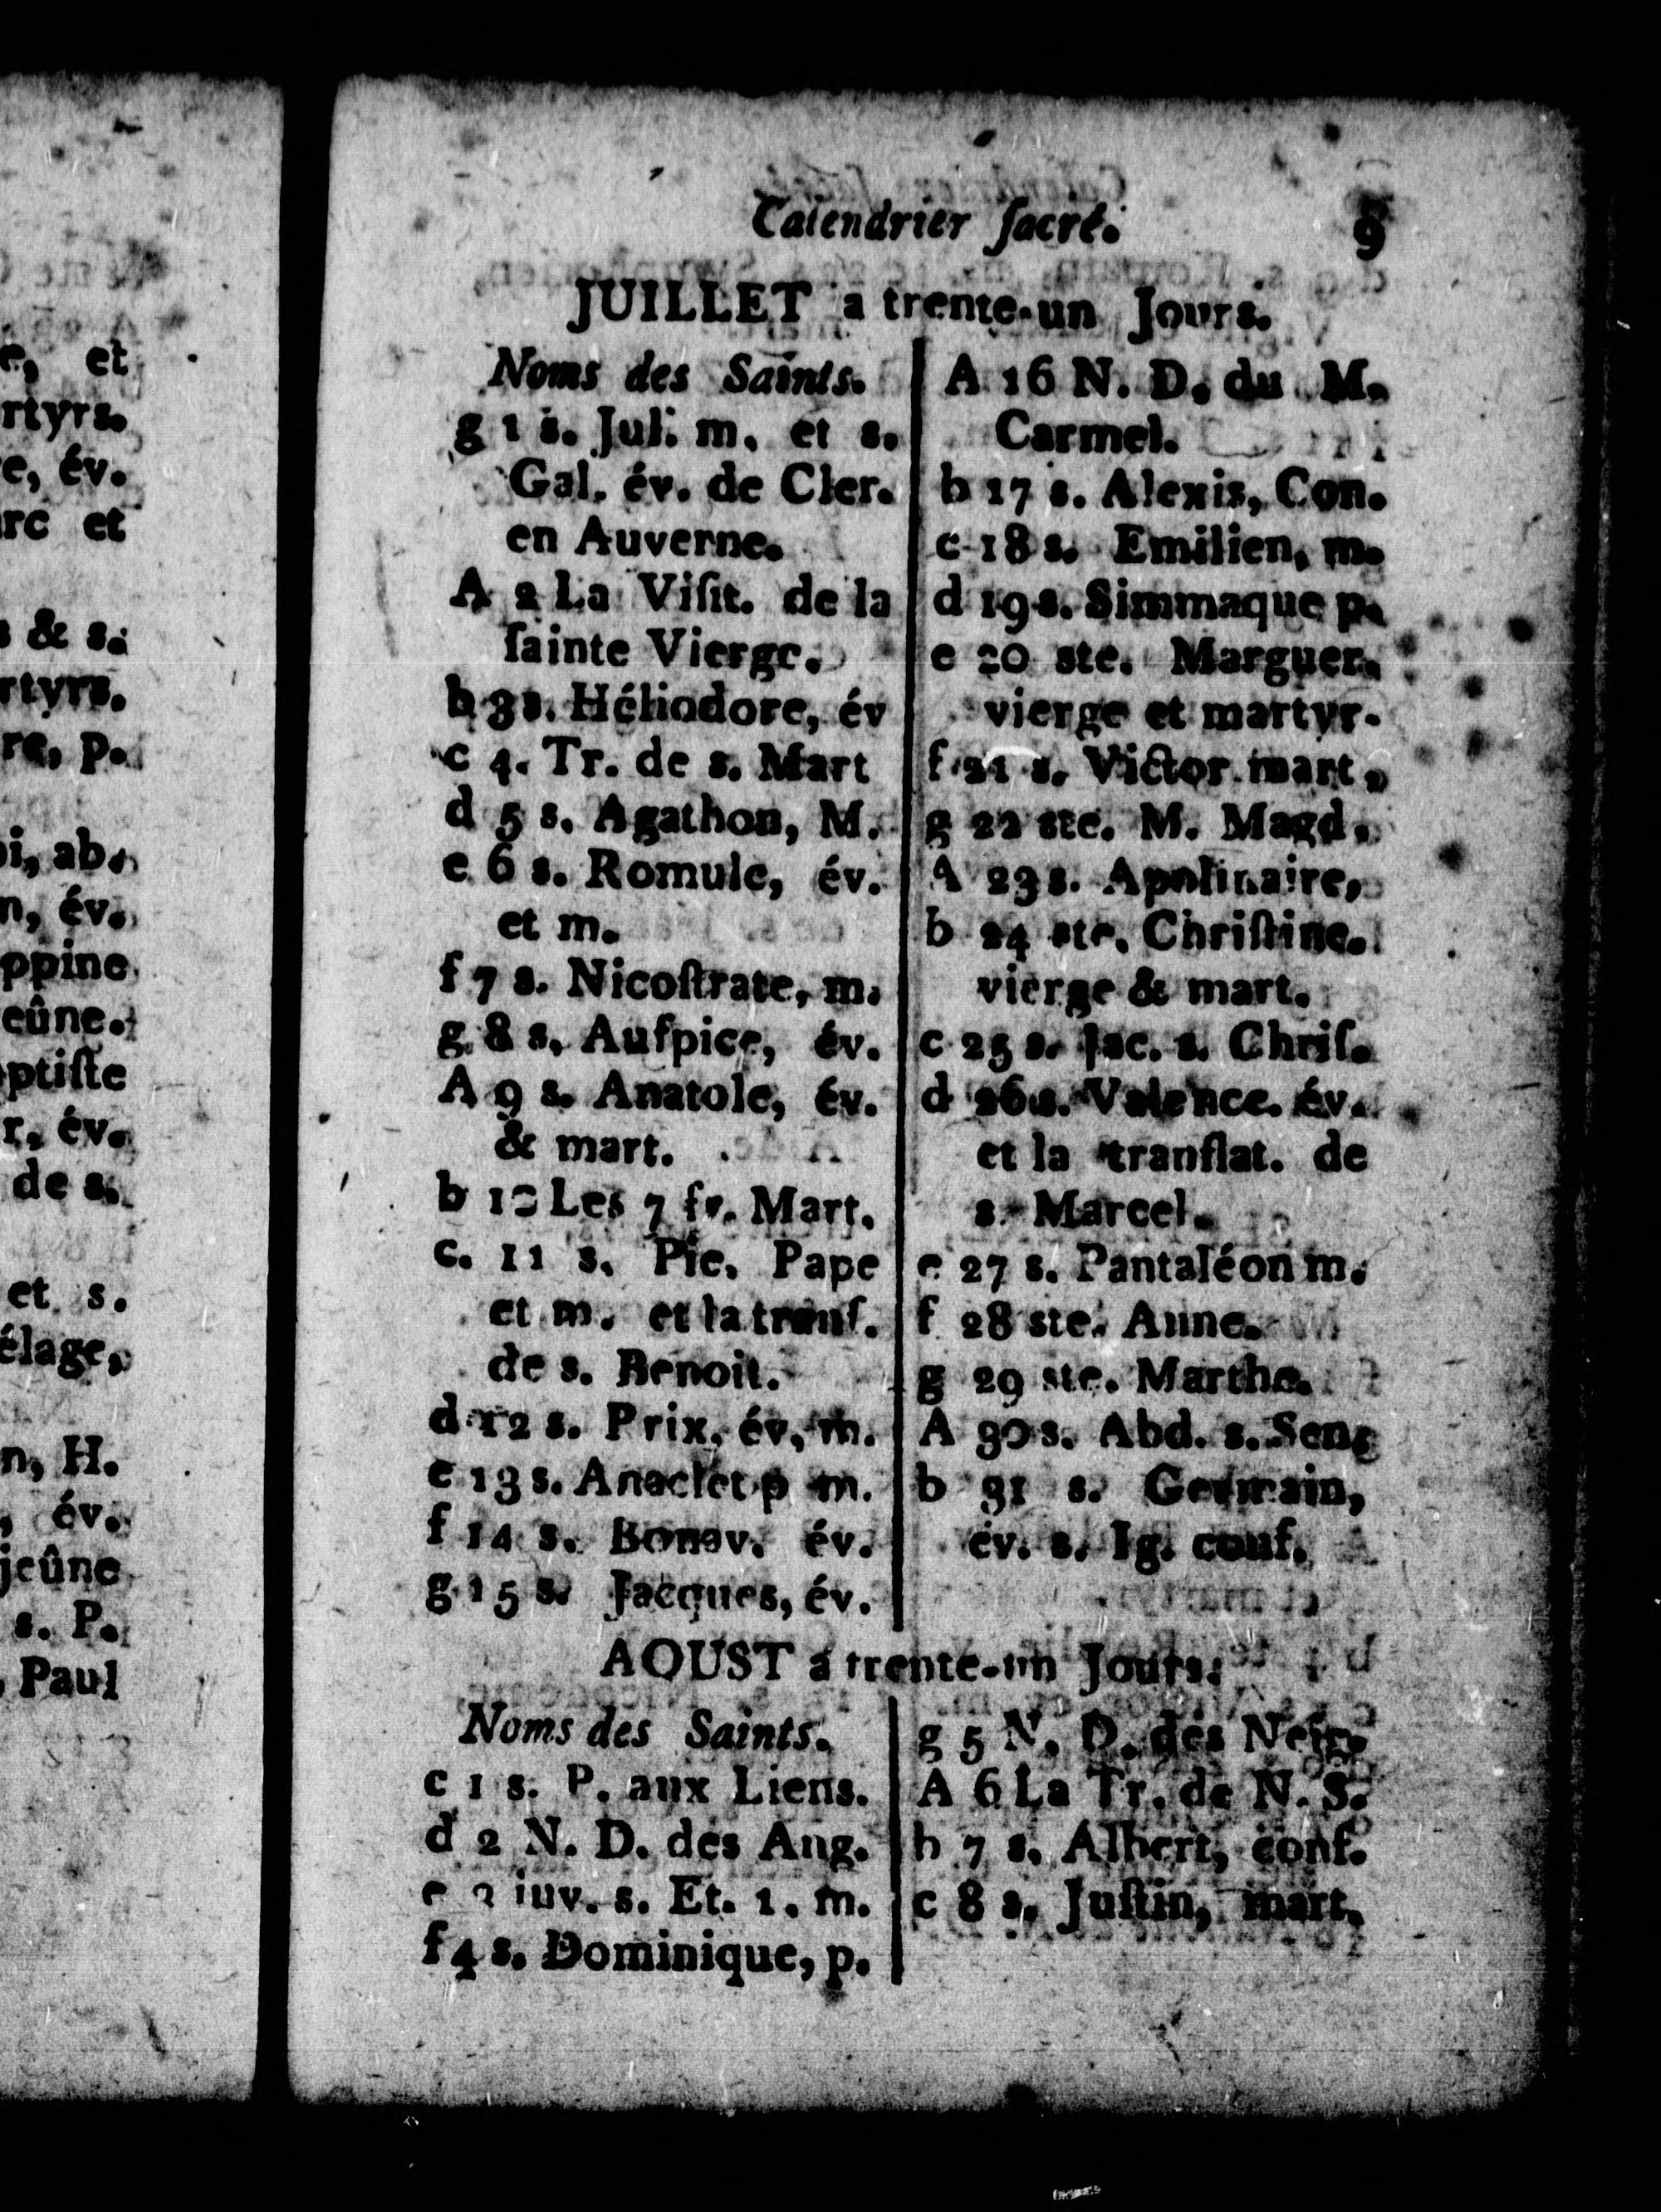 e, et
rtyrs.
e, év.
arc et
s & s.
rtyrs.
re, p.
oi, ab.
n, év.
ppine
eûne.
ptiſte
r, év.
de s.
et s.
élage,
n, H.
, év.
jeûne
s. P.
Paul
Calendrier ſacré. 9
JUILLET a trente-un Jours.
Noms des Saints.
g 1 s. Jul. m. et s.
Gal. év. de Cler.
en Auverne.
A 2 La Viſit. de la
ſainte Vierge.
b 3 s. Héliodore, év
c 4. Tr. de s. Mart
d 5 s. Agathon, M.
e 6 s. Romule, év.
et m.
f 7 s. Nicoſtrate, m.
g 8 s. Auſpice, év.
A 9 s. Anatole, év.
& mart.
b 10 Les 7 fr. Mart.
c. 11 s. Pie. Pape
et m. et la tranſ.
de s. Benoit.
d 12 s. Prix. év. m.
e 13 s. Anaclet p m.
f 14 s. Bonav. év.
g 15 s. Jacques, év.
A 16 N. D. du M.
Carmel.
b 17 s. Alexis, Con.
c 18 s. Emilien, m.
d 19 s. Simmaque p.
e 20 ste. Marguer.
vierge et martyr.
f 21 s. Victor mart,
g 22 ste. M. Magd.
A 23 s. Apolinaire,
b 24 ste. Chriſtine.
vierge & mart.
c 25 s. Jac. s. Chriſ.
d 26 s. Valence. év.
et la tranſlat. de
s. Marcel.
e 27 s. Pantaléon m.
f 28 ste. Anne.
g 29 ste. Marthe.
A 30 s. Abd. s. Sen.
b 31 s. Germain,
év. s. Ig. conf.
AOUST a trente-un Jours.
Noms des Saints.
c 1 s. P. aux Liens.
d 2 N. D. des Ang.
e 3 iuv. s. Et. 1. m.
f 4 s. Dominique, p.
g 5 N. D. des Neig.
A 6 La Tr. de N. S.
b 7 s. Albert, conf.
c 8 s. Juſtin, mart.